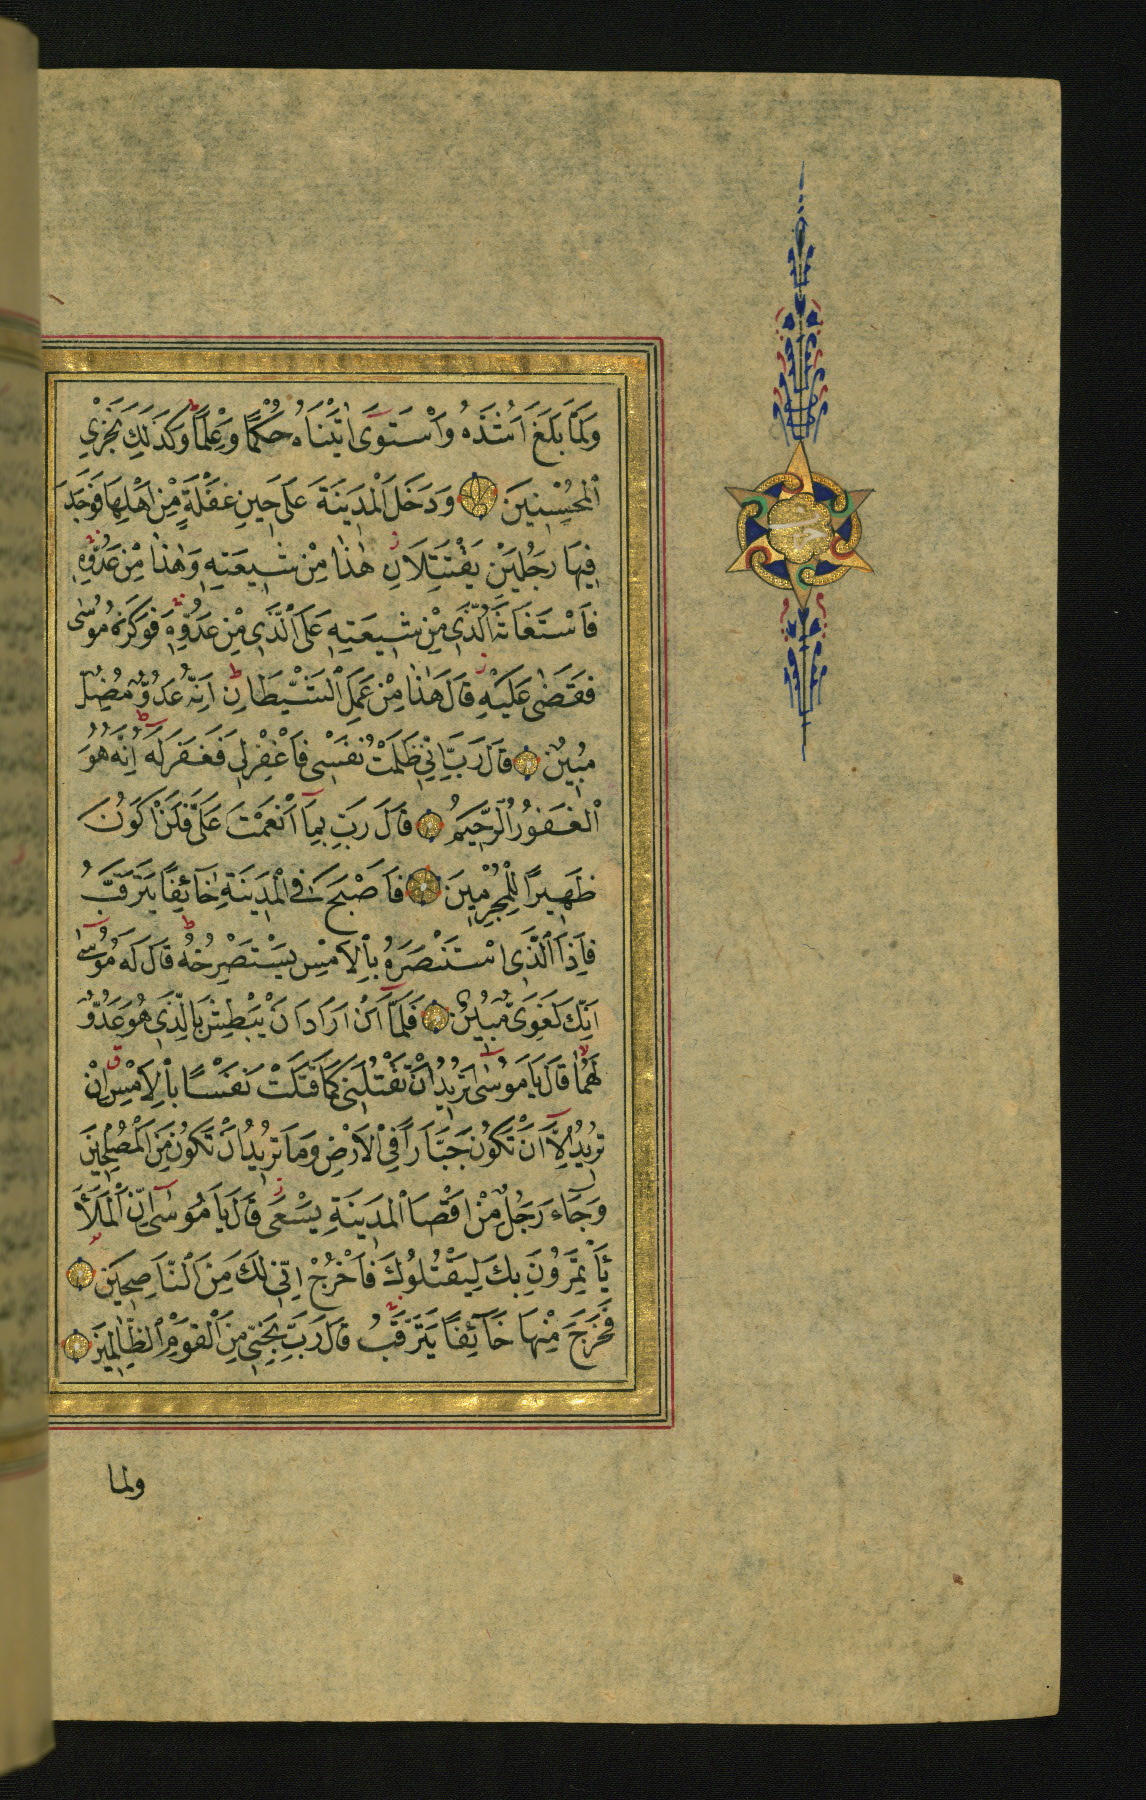 وَلَمَّا بَلَغَ اَشُدَّهُ وَاسْتَوٰى اٰتَيْنَاهُ حُكْمًا وَعِلْمًا وَكَذٰلِكَ نَجْزِي
الْمُحْسِنِينَ وَدَخَلَ الْمَدِينَةَ عَلٰى حِينِ غَفْلَةٍ مِنْ اَهْلِهَا فَوَجَدَ
فِيهَا رَجُلَيْنِ يَقْتَتِلَانِ هٰذَا مِنْ شِيعَتِهِ وَهٰذَا مِنْ عَدُوِّهِ
فَاسْتَغَاثَهُ الَّذِي مِنْ شِيعَتِهِ عَلَى الَّذِي مِنْ عَدُوِّهِ فَوَكَزَهُ مُوسٰى
فَقَضٰى عَلَيْهِ قَالَ هٰذَا مِنْ عَمَلِ الشَّيْطَانِ اِنَّهُ عَدُوٌّ مُضِلٌّ
مُبِينٌ قَالَ رَبِّ اِنِّي ظَلَمْتُ نَفْسِي فَاغْفِرْ لِي فَغَفَرَ لَهُ اِنَّهُ هُوَ
الْغَفُورُ الرَّحِيمُ قَالَ رَبِّ بِمَا اَنْعَمْتَ عَلَيَّ فَلَنْ اَكُونَ
ظَهِيرًا لِلْمُجْرِمِينَ فَاَصْبَحَ فِي الْمَدِينَةِ خَائِفًا يَتَرَقَّبُ
فَاِذَا الَّذِي اسْتَنْصَرَهُ بِالْاَمْسِ يَسْتَصْرِخُهُ قَالَ لَهُ مُوسٰى
اِنَّكَ لَغَوِيٌّ مُبِينٌ فَلَمَّا اَنْ اَرَادَ اَنْ يَبْطِشَ بِالَّذِي هُوَ عَدُوٌّ
لَهُمَا قَالَ يَا مُوسٰى اَتُرِيدُ اَنْ تَقْتُلَنِي كَمَا قَتَلْتَ نَفْسًا بِالْاَمْسِ اِنْ
تُرِيدُ اِلَّا اَنْ تَكُونَ جَبَّارًا فِي الْاَرْضِ وَمَا تُرِيدُ اَنْ تَكُونَ مِنَ الْمُصْلِحِينَ
وَجَاءَ رَجُلٌ مِنْ اَقْصَا الْمَدِينَةِ يَسْعٰى قَالَ يَا مُوسٰى اِنَّ الْمَلَأَ
يَأْتَمِرُونَ بِكَ لِيَقْتُلُوكَ فَاخْرُجْ اِنِّي لَكَ مِنَ النَّاصِحِينَ
فَخَرَجَ مِنْهَا خَائِفًا يَتَرَقَّبُ قَالَ رَبِّ نَجِّنِي مِنَ الْقَوْمِ الظَّالِمِينَ
ولما